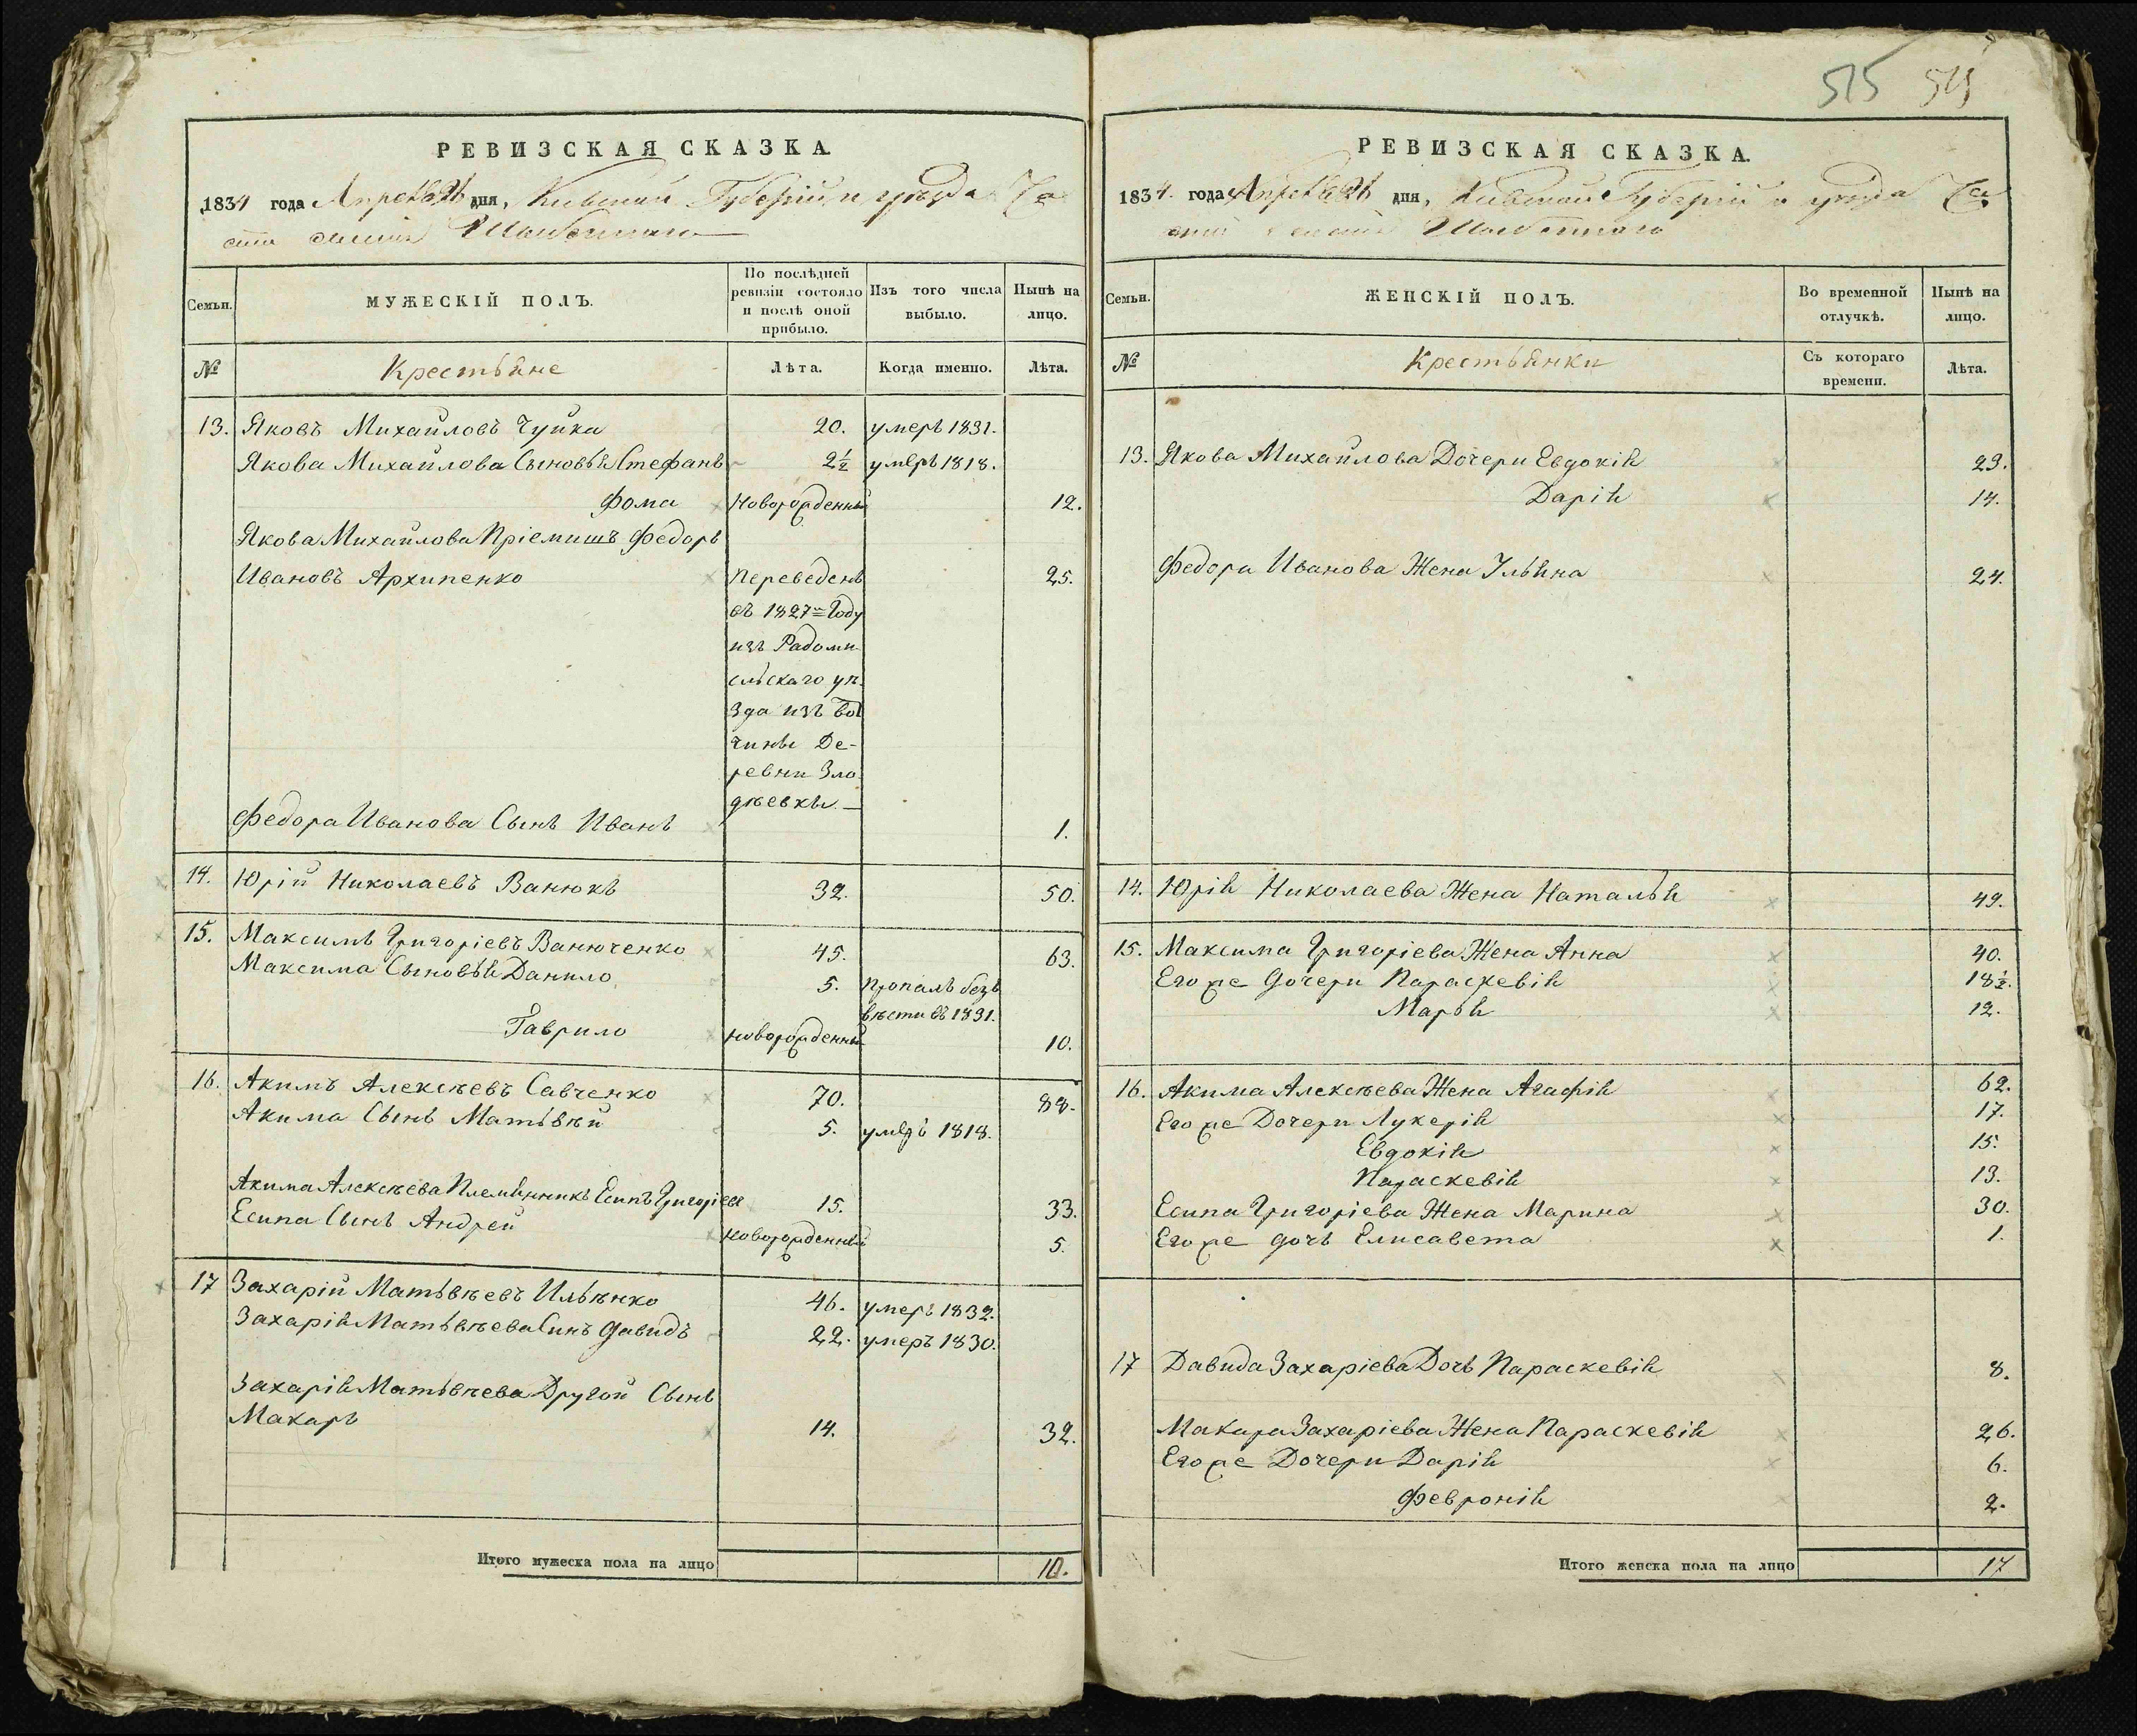 515 515
РЕВИЗСКАЯ СКАЗКА.
1834 года Апреля 26 дня, Киевской Губерніи и уезда Ча
сти селенія
Семьи.
МУЖЕСКІЙ ПОЛЪ.
По послѣдней
ревизіи состояло
и послѣ оной
прибыло.
Изъ того числа
выбыло.
Нынѣ на
лицо.
№
Крестьяне
Лѣта.
Когда именно.
Лѣта.
13. Яковъ Михайловъ Чуйка 20. умеръ 1831.
Якова Михайлова Сыновья Стефанъ 2½ умеръ 1818.
Фома Новорожденный 12.
Якова Михайлова Пріемишъ Федоръ
Ивановъ Архипенко Переведенъ 25.
въ 1827мъ Году
изъ Радоми
сльскаго уѣ
зда изъ вот
чины Де-
ревни Зло
дѣевки.
Федора Иванова Сынъ Иванъ 1.
14. Юрій Николаевъ Ванюкъ 32. 50.
15. Максимъ Григоріевъ Ванюченко 45. 63.
Максима Сыновья Данило 5. Пропалъ безъ
вѣсти въ 1831.
Гаврило новорожденный 10.
16. Акимъ Алексѣевъ Савченко 70. 88.
Акима Сынъ Матьвѣй 5. умеръ 1818.
Акима Алексѣева Племянникъ Есипъ Григоріевъ 15. 33.
Есипа Сынъ Андрей новорожденный 5.
17 Захарій Матьвѣевъ Ильѣнко 46. умеръ 1832.
Захарія Матьвѣева Синъ Давидъ 22. умеръ 1830.
Захарія Матьвѣева Другой Сынъ
Макаръ 14. 32.
Итого мужеска пола на лицо 10.
РЕВИЗСКАЯ СКАЗКА.
1834. года Апреля 26 дня, Киевской Губерніи и уезда Ча
сти селенія
Семьи.
ЖЕНСКІЙ ПОЛЪ.
Во временной
отлучкѣ.
Нынѣ на
лицо.
№
Крестьянки
Съ котораго
времени.
Лѣта.
13. Якова Михайлова Дочери Евдокія 23.
Дарія 14.
Федора Иванова Жена Ульяна 24.
14. Юрія Николаева Жена Наталья 49.
15. Максима Григоріева Жена Анна 40.
Его же дочери Параскевія 18½.
Марья 12.
16. Акима Алексѣева Жена Агафія 62.
Его же Дочери Лукерія 17.
Евдокія 15.
Параскевія 13.
Есипа Григоріева Жена Марина 30.
Его же дочь Елисавета 1.
17 Давида Захаріева Дочь Параскевія 8.
Макара Захаріева Жена Параскевія 26.
Его же Дочери Дарія 6.
Февронія 2.
Итого женска пола на лицо 17